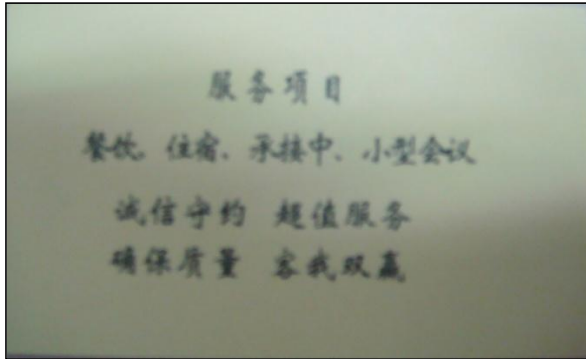 服务项目
餐饮、住宿、承接中、小型会议
诚信守约 超值服务
确保质量 客我双赢